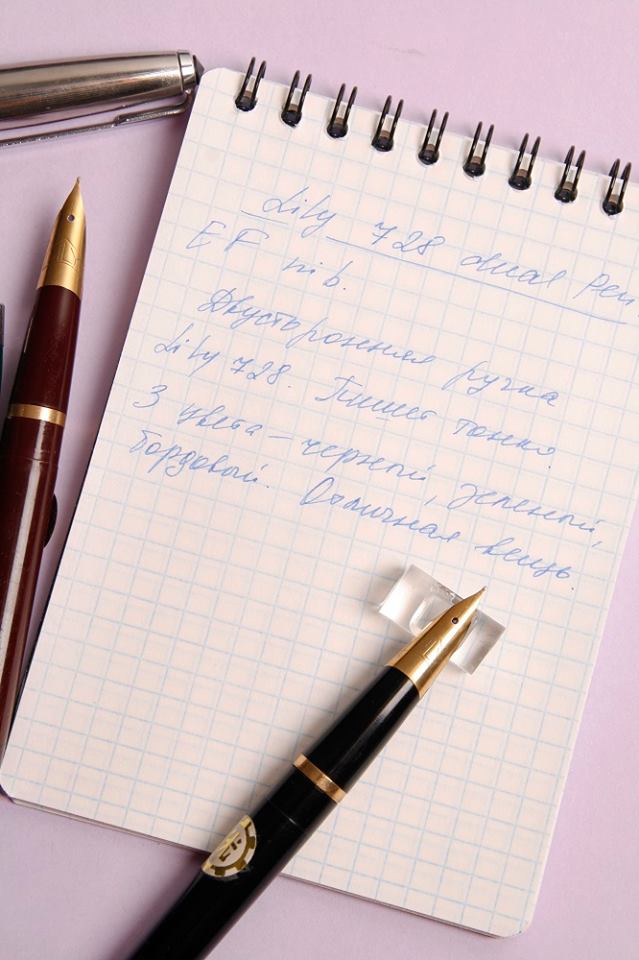 Lily 728 dual Pen
EF nib.
Двусторонняя ручка
Lily 728. Пишет тонко.
3 цвета – черный, зеленый,
бордовый. Отличная вещь.